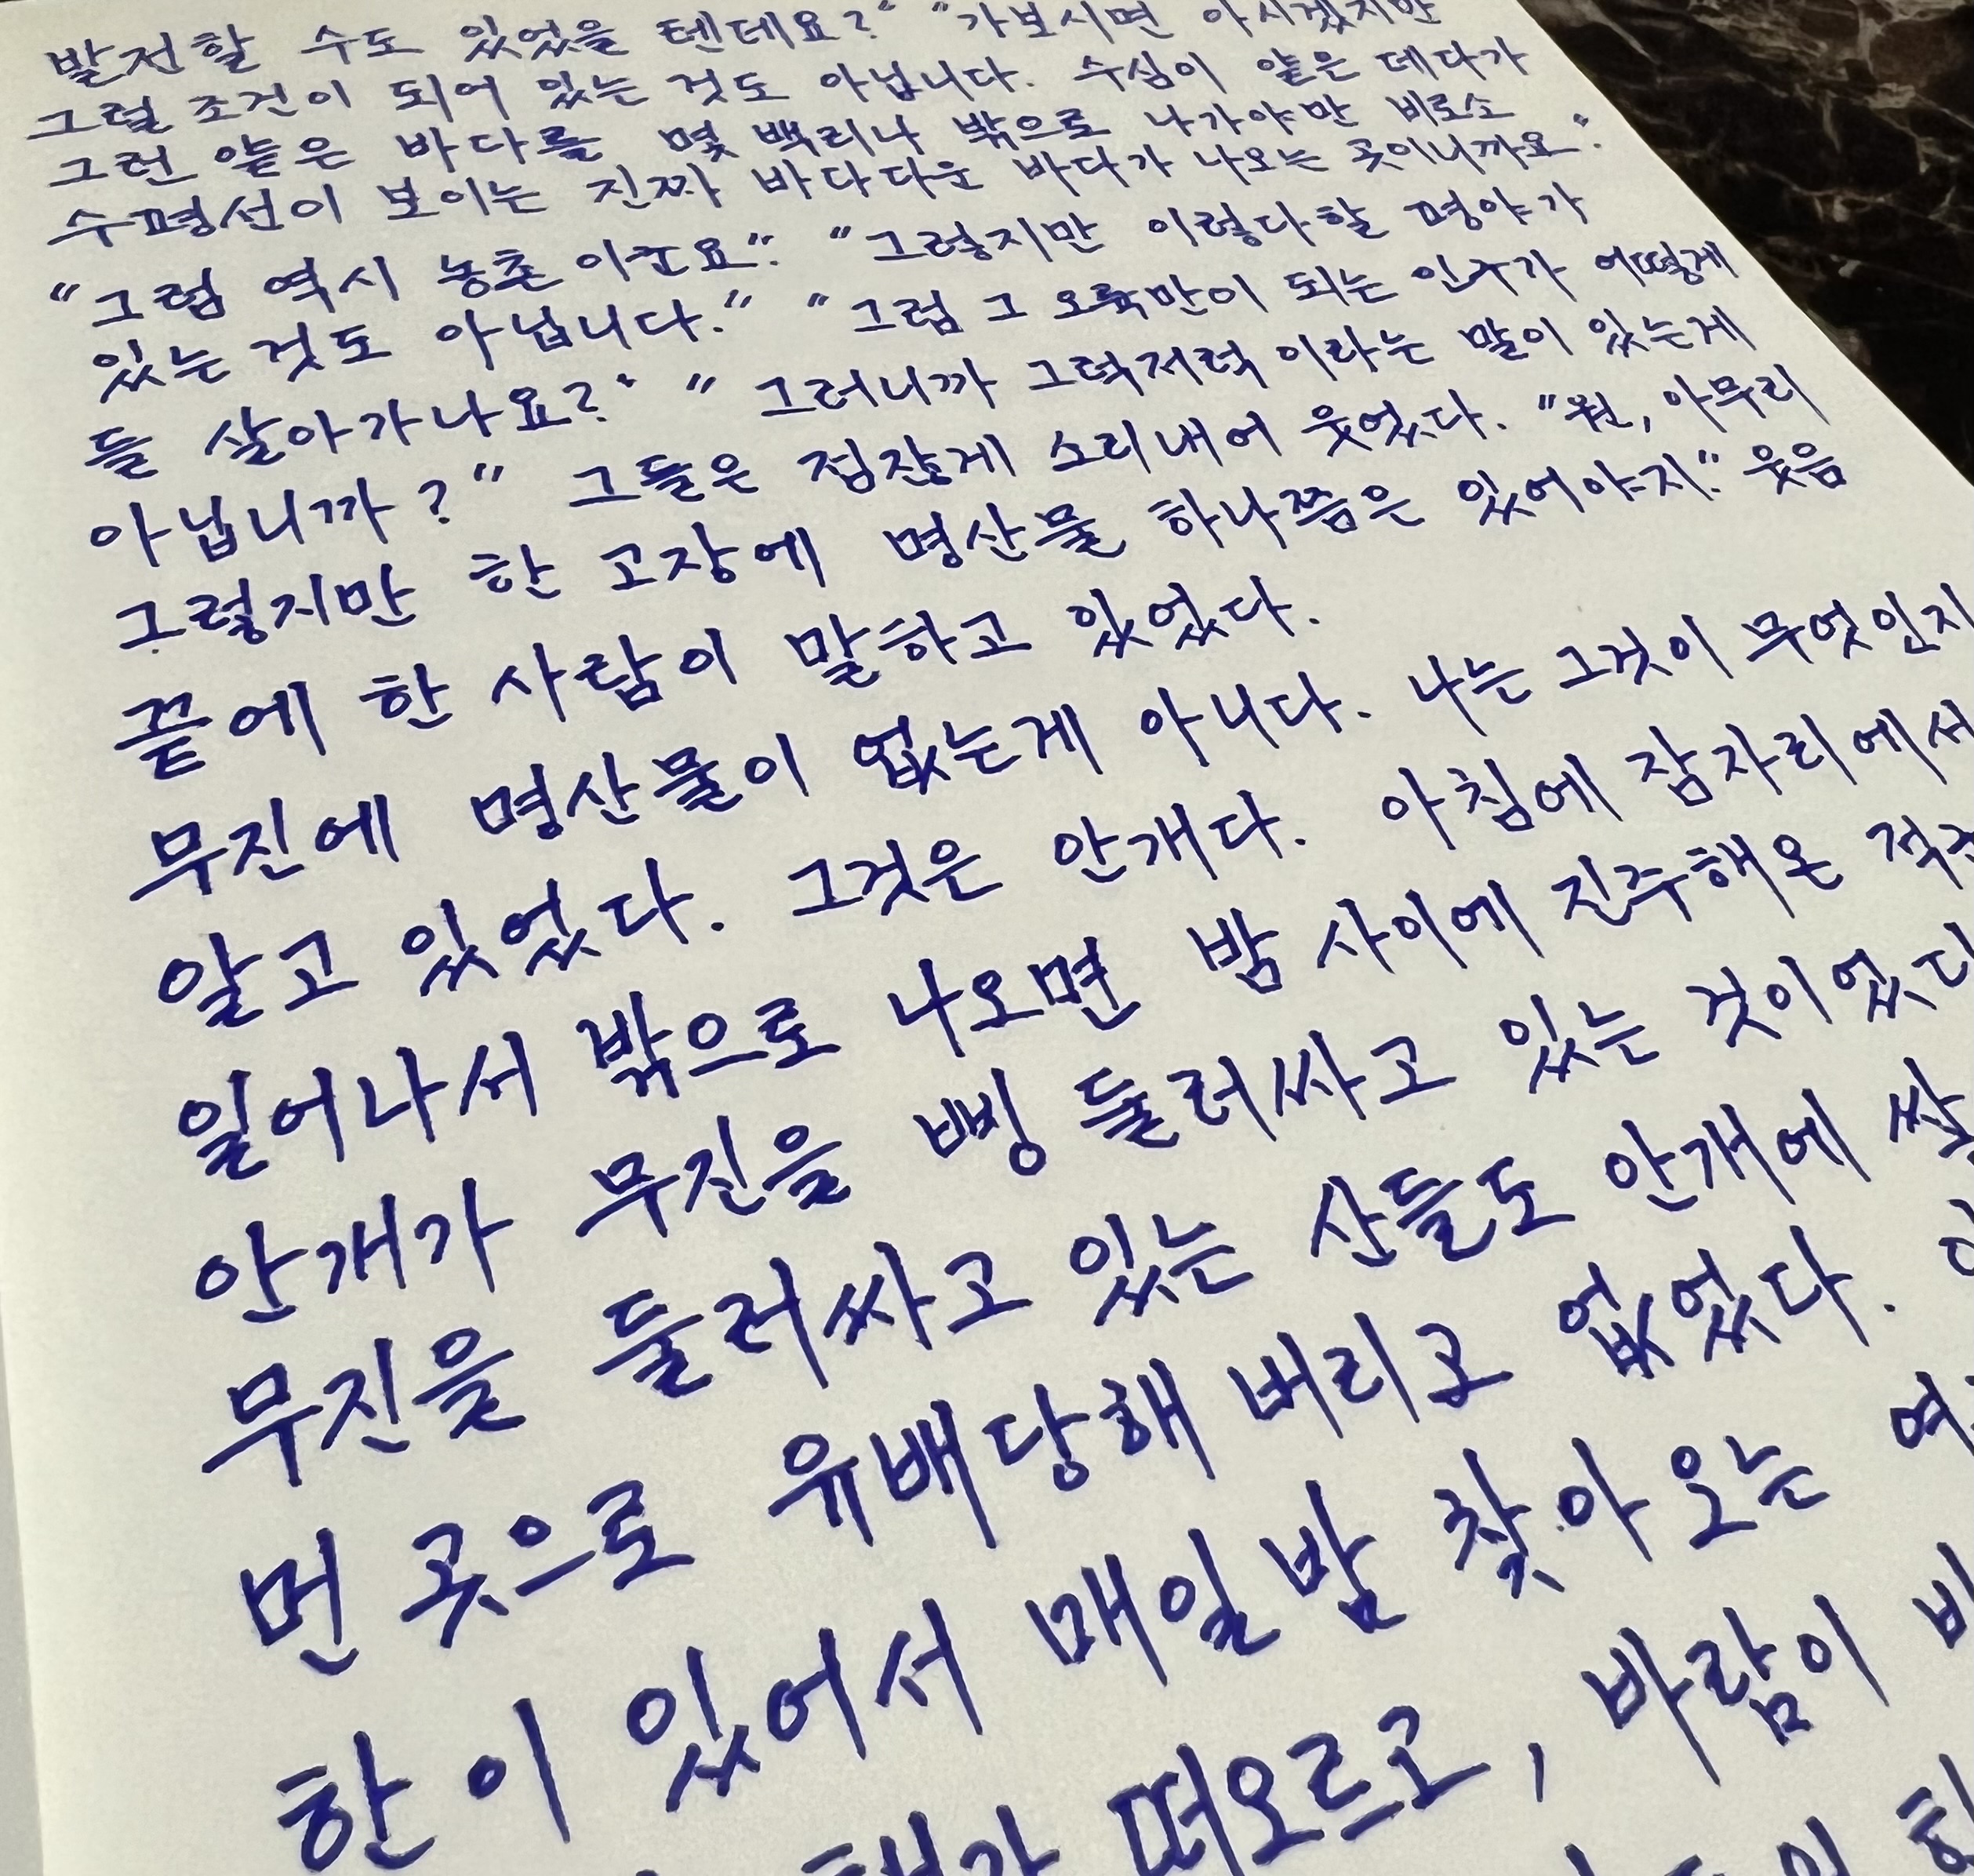 발전할 수도 있었을 텐데요?" "가보시면 아시겠지만
그럴 조건이 되어 있는 것도 아닙니다. 수심이 얕은 데다가
그런 얕은 바다를 몇 백리나 밖으로 나가야만 비로소
수평선이 보이는 진짜 바다다운 바다가 나오는 곳이니까요."
"그럼 역시 농촌이군요." "그렇지만 이렇다할 평야가
있는 것도 아닙니다." "그럼 그 오륙만이 되는 인구가 어떻게
들 살아가나요?" "그러니까 그럭저럭이라는 말이 있는게
아닙니까?" 그들은 점잖게 소리내어 웃었다. "원, 아무리
그렇지만 한 고장에 명산물 하나쯤은 있어야지." 웃음
끝에 한 사람이 말하고 있었다.
무진에 명산물이 없는게 아니다. 나는 그것이 무엇인지
알고 있었다. 그것은 안개다. 아침에 잠자리에서
일어나서 밖으로 나오면 밤 사이에 진주해온
안개가 무진을 삥 둘러싸고 있는 것이었다
무진을 둘러싸고 있는 산들도 안개에
먼 곳으로 유배당해 버리고 없었다.
한이 있어서 매일 밤 찾아오는
해가 떠오르고, 바람이